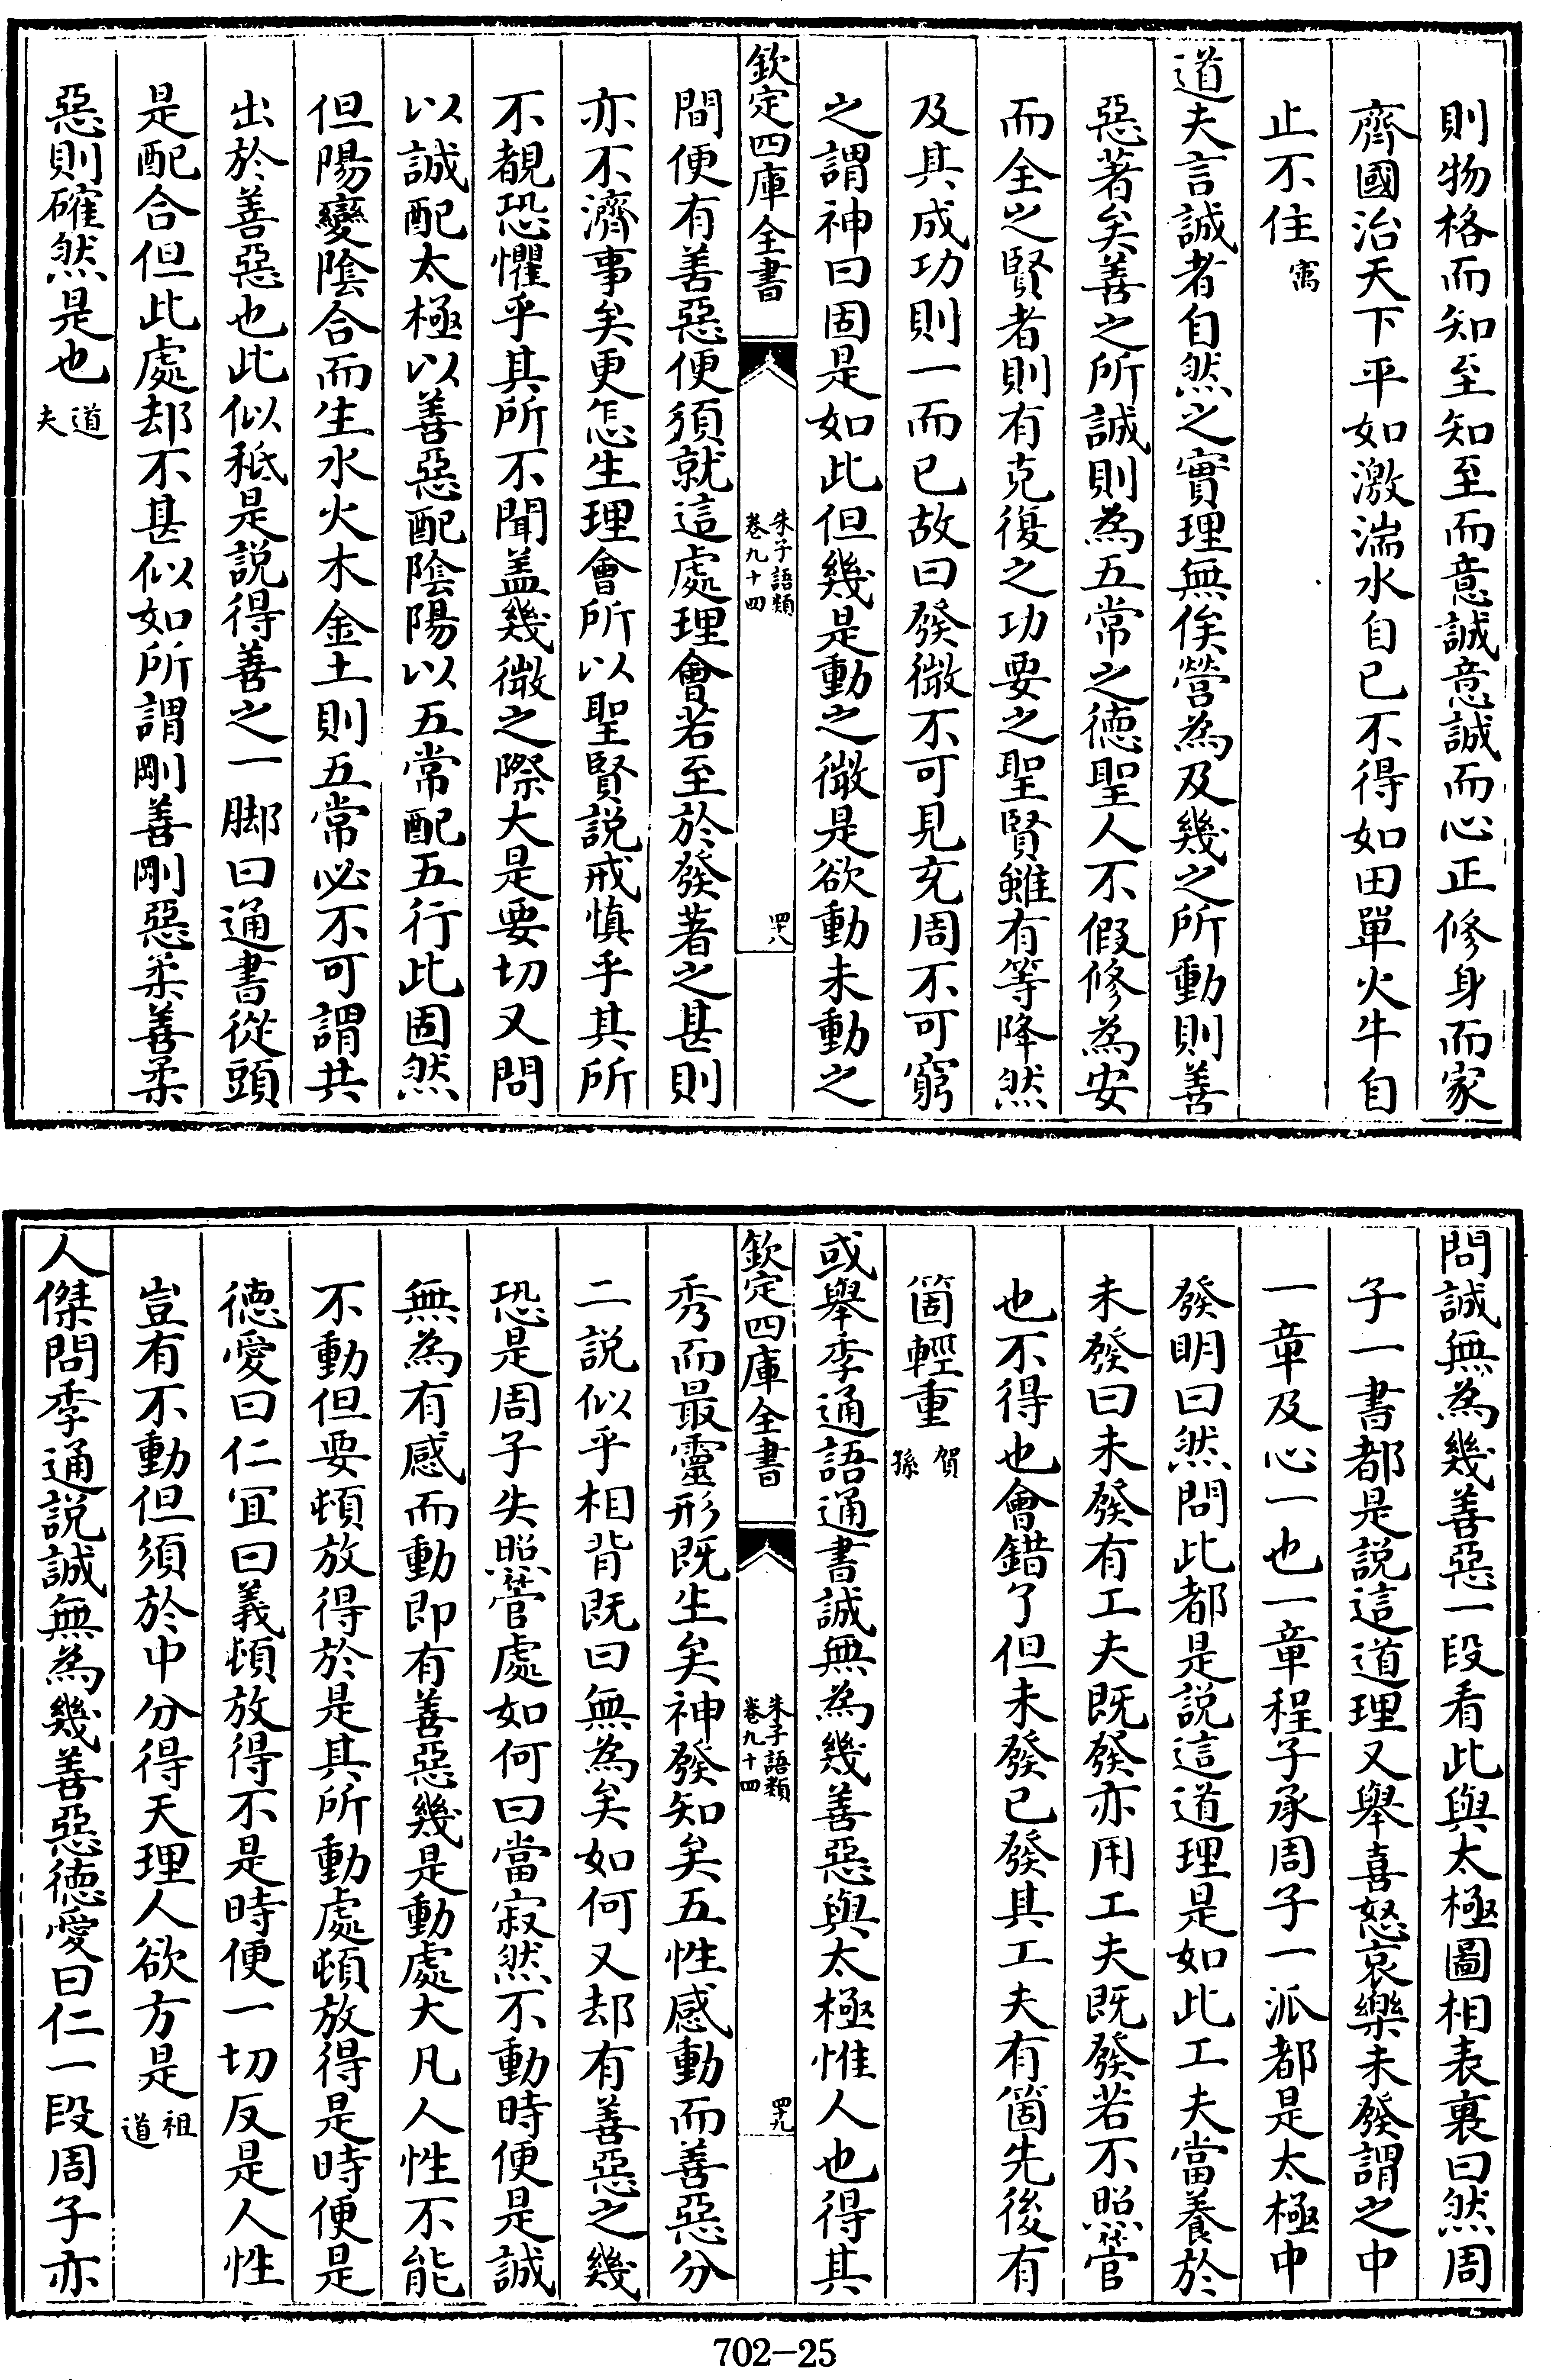 則物格而知至知至而意誠意誠而心正修身而家
齊國治天下平如激湍水自已不得如田單火牛自
止不住㝢
道夫言誠者自然之實理無俟營為及幾之所動則善
惡著矣善之所誠則為五常之德聖人不假修為安
而全之賢者則有克復之功要之聖賢雖有等降然
及其成功則一而已故曰發微不可見充周不可窮
之謂神曰固是如此但幾是動之微是欲動未動之
欽定四庫全書
朱子語類
卷九十四
四十八
間便有善惡便須就這處理會若至於發著之甚則
亦不濟事矣更怎生理會所以聖賢説戒慎乎其所
不覩恐懼乎其所不聞盖幾微之際大是要切又問
以誠配太極以善惡配陰陽以五常配五行此固然
但陽變陰合而生水火木金土則五常必不可謂共
出於善惡也此似秪是説得善之一脚曰通書從頭
是配合但此處却不甚似如所謂剛善剛惡柔善柔
惡則確然是也道夫
問誠無為幾善惡一段看此與太極圖相表裏曰然周
子一書都是説這道理又舉喜怒哀樂未發謂之中
一章及心一也一章程子承周子一派都是太極中
發明曰然問此都是説這道理是如此工夫當養於
未發曰未發有工夫既發亦用工夫既發若不照管
也不得也會錯了但未發已發其工夫有箇先後有
箇輕重賀孫
或舉季通語通書誠無為幾善惡與太極惟人也得其
欽定四庫全書
朱子語類
卷九十四
四十九
秀而最靈形既生矣神發知矣五性感動而善惡分
二説似乎相背既曰無為矣如何又却有善惡之幾
恐是周子失照管處如何曰當寂然不動時便是誠
無為有感而動即有善惡幾是動處大凡人性不能
不動但要頓放得於是其所動處頓放得是時便是
德愛曰仁宜曰義頓放得不是時便一切反是人性
豈有不動但須於中分得天理人欲方是祖道
人傑問季通説誠無為幾善惡德愛曰仁一段周子亦
702-25